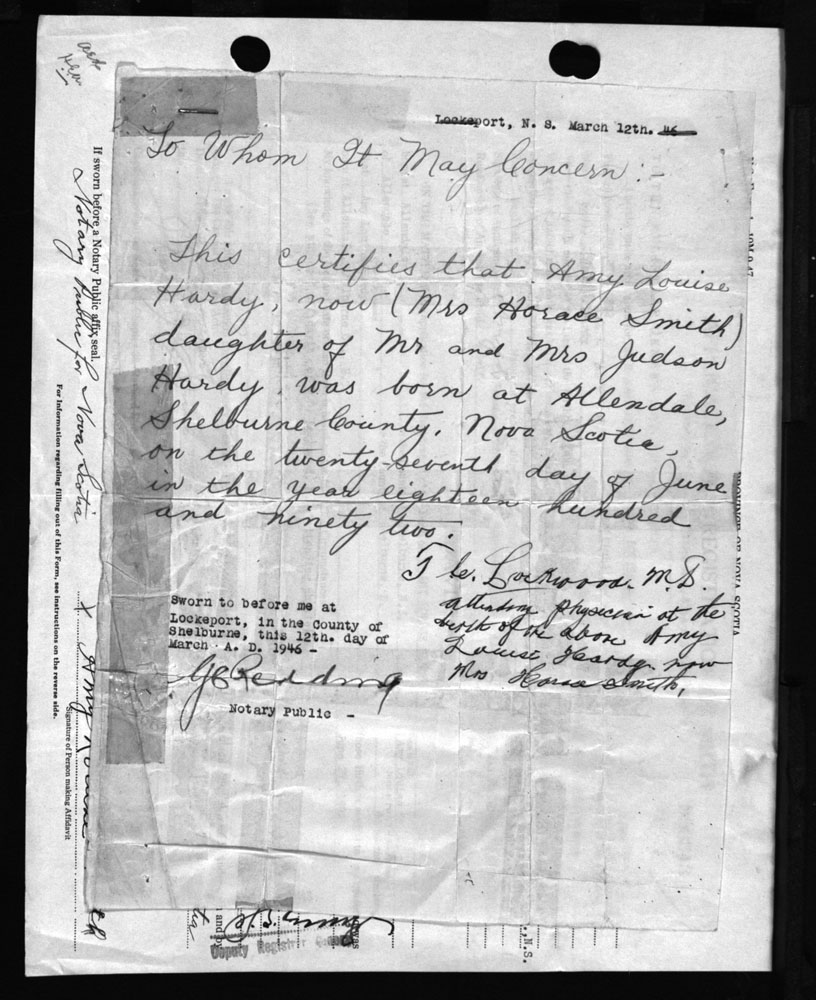 Lockeport, N. S. March 12th. 46
To Whom It May Concern:-
This certifies that Amy Louise
Hardy, now (Mrs Horace Smith)
daughter of Mr and Mrs Judson
Hardy, was born at Allendale,
Shelburne County, Nova Scotia,
on the twenty-seventh day of June
in the year eighteen hundred
and ninety two.
Lockwood. M.D.
attending physician at the
birth of the above Amy
Louise Hardy now
Mrs Horace Smith.
Sworn to before me at
Lockeport, in the County of
Shelburne, this 12th. day of
March A. D. 1946 -
Redding
Notary Public -
If sworn before a Notary Public affix seal.
Notary Public for Nova Scotia
For Information regarding filling out of this Form, see instructions on the reverse side.
X Amy Louise
Signature of Person making Affidavit
PROVINCE OF NOVA SCOTIA
Deputy Registrar
and by
was
, N.S.